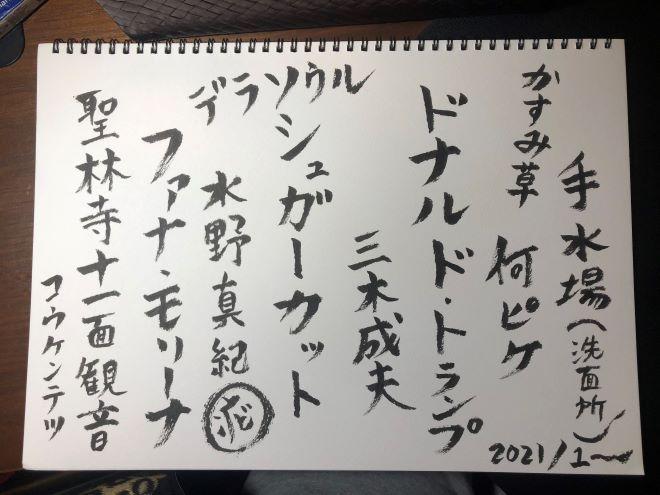 手水場(洗面所)
かすみ草
何ピケ
ドナルド・トランプ
三木成夫
シュガーカット
デラソウル
水野真紀
ファナ・モリーナ
聖林寺十一面観音
コウケンテツ
2021/1〜